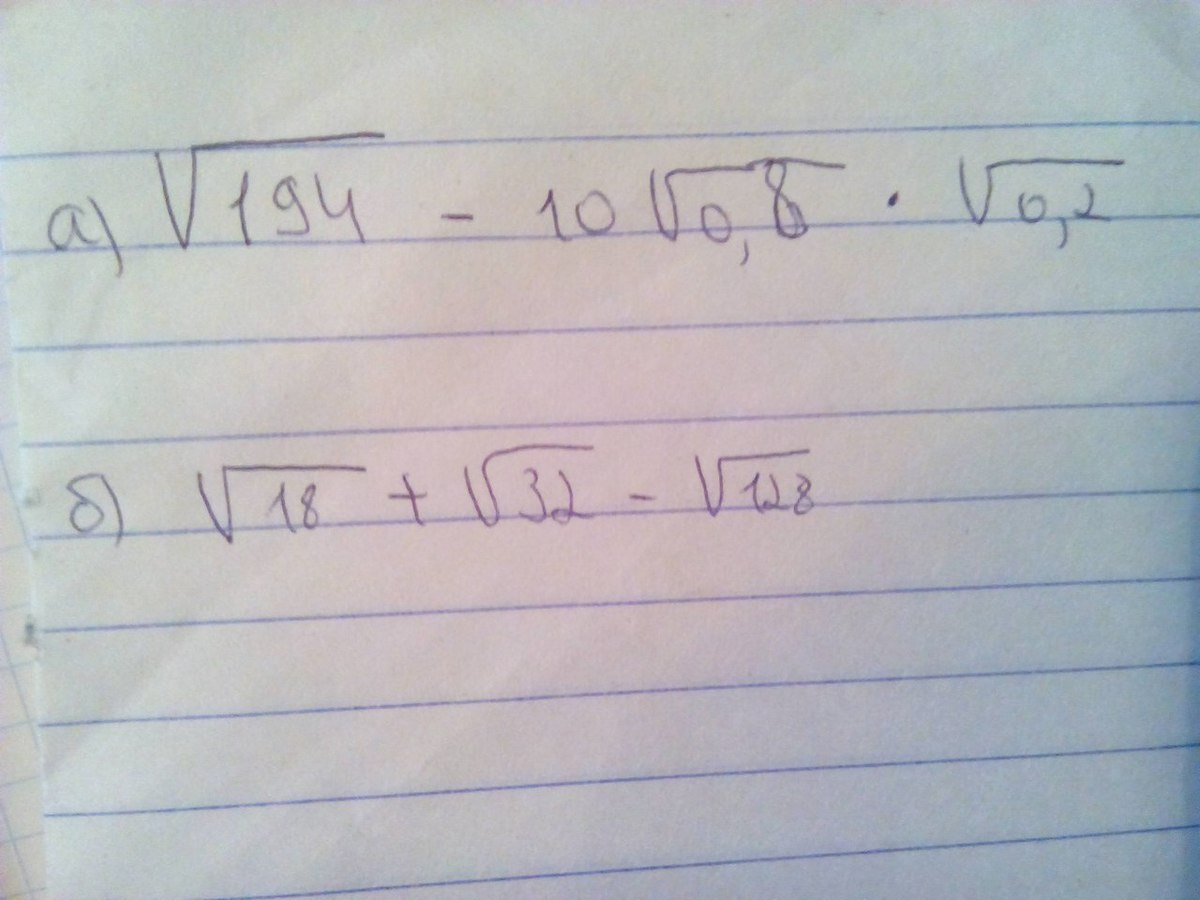 а) √194 - 10√0,8 · √0,2
б) √18 + √32 - √128